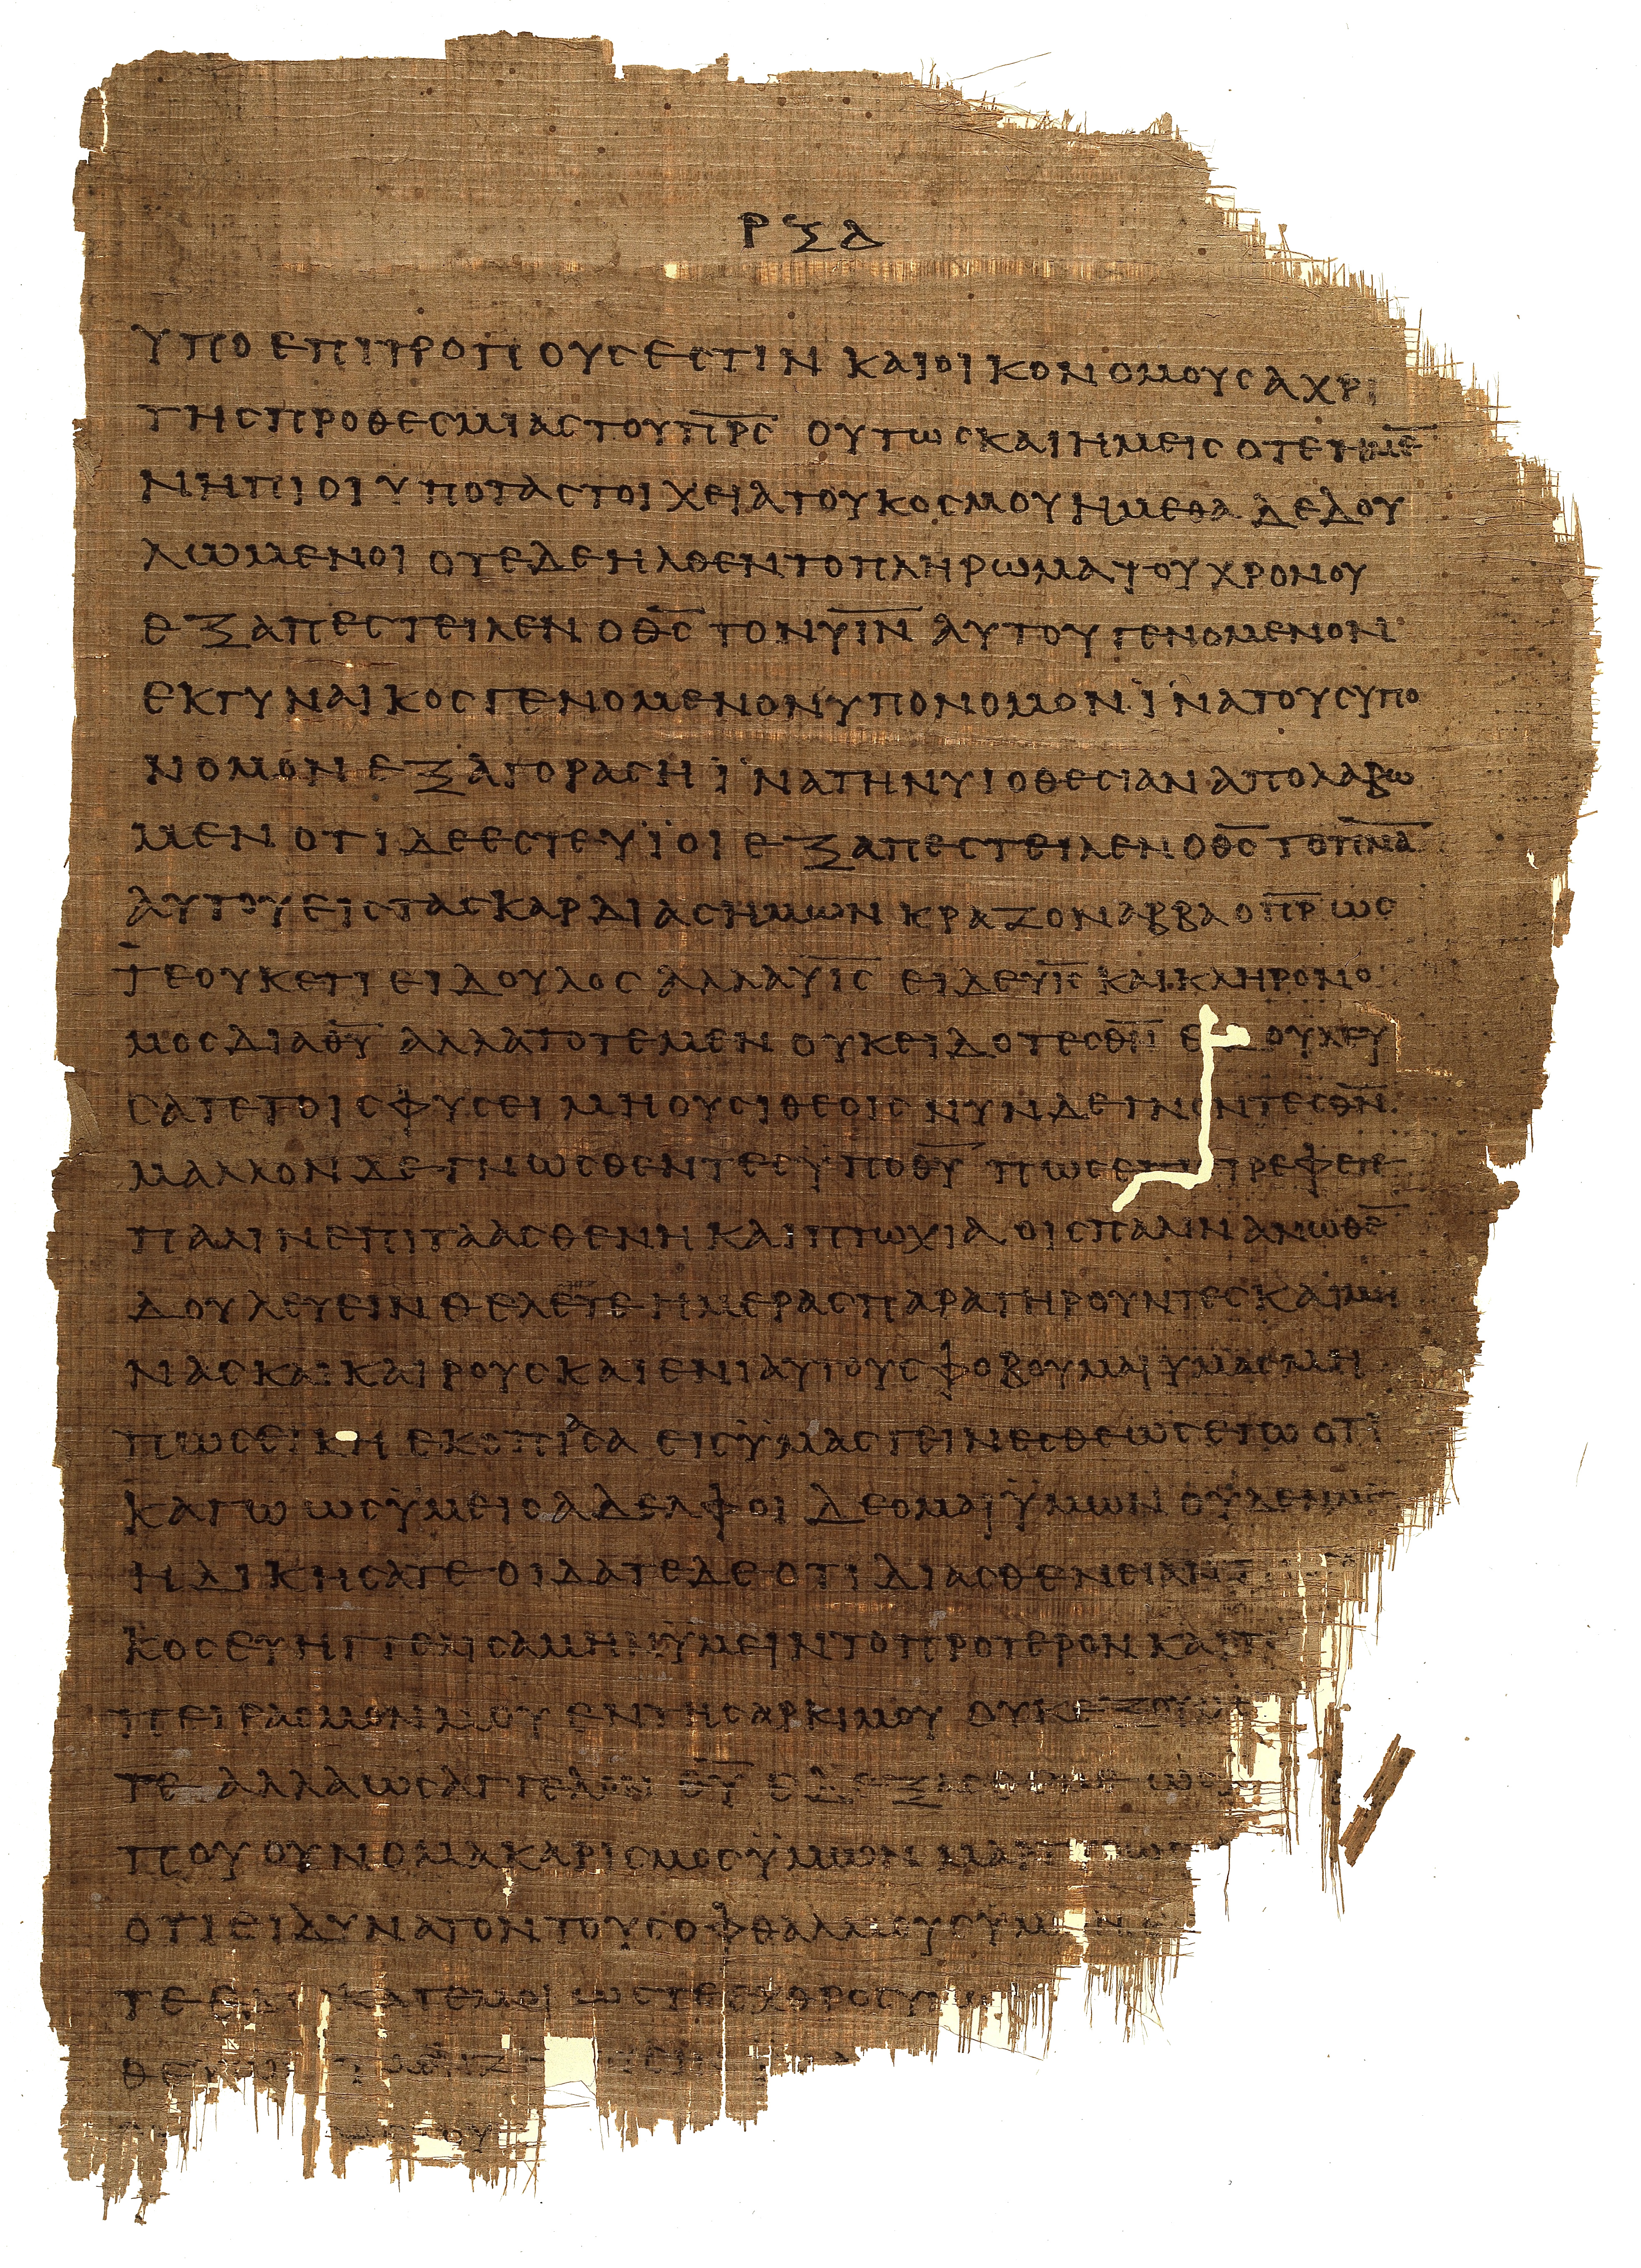 ΡΞΔ
ΥΠΟ ΕΠΙΤΡΟΠΟΥΣ ΕΣΤΙΝ ΚΑΙ ΟΙΚΟΝΟΜΟΥΣ ΑΧΡΙ
ΤΗΣ ΠΡΟΘΕΣΜΙΑΣ ΤΟΥ Π̅Ρ̅Σ̅ ΟΥΤΩΣ ΚΑΙ ΗΜΕΙΣ ΟΤΕ ΗΜΕ̅
ΝΗΠΙΟΙ ΥΠΟ ΤΑ ΣΤΟΙΧΕΙΑ ΤΟΥ ΚΟΣΜΟΥ ΗΜΕΘΑ ΔΕΔΟΥ
ΛΩΜΕΝΟΙ ΟΤΕ ΔΕ ΗΛΘΕΝ ΤΟ ΠΛΗΡΩΜΑ ΤΟΥ ΧΡΟΝΟΥ
ΕΞΑΠΕΣΤΕΙΛΕΝ Ο Θ̅Σ̅ ΤΟΝ Υ̅Ι̅Ν̅ ΑΥΤΟΥ ΓΕΝΟΜΕΝΟΝ
ΕΚ ΓΥΝΑΙΚΟΣ ΓΕΝΟΜΕΝΟΝ ΥΠΟ ΝΟΜΟΝ ΪΝΑ ΤΟΥΣ ΥΠΟ
ΝΟΜΟΝ ΕΞΑΓΟΡΑΣΗ ΪΝΑ ΤΗΝ ΥΙΟΘΕΣΙΑΝ ΑΠΟΛΑΒΩ
ΜΕΝ ΟΤΙ ΔΕ ΕΣΤΕ ΥΪΟΙ ΕΞΑΠΕΣΤΕΙΛΕΝ Ο Θ̅Σ̅ ΤΟ Π̅Ν̅Α̅
ΑΥΤΟΥ ΕΙΣ ΤΑΣ ΚΑΡΔΙΑΣ ΗΜΩΝ ΚΡΑΖΟΝ ΑΒΒΑ Ο Π̅Ρ̅ ΩΣ
ΤΕ ΟΥΚΕΤΙ ΕΙ ΔΟΥΛΟΣ ΑΛΛΑ Υ̅Ι̅Σ̅ ΕΙ ΔΕ Υ̅Ι̅Σ̅ ΚΑΙ ΚΛΗΡΟΝΟ
ΜΟΣ ΔΙΑ Θ̅Υ̅ ΑΛΛΑ ΤΟΤΕ ΜΕΝ ΟΥΚ ΕΙΔΟΤΕΣ Θ̅Ν̅ ΕΔΟΥΛΕΥ
ΣΑΤΕ ΤΟΙΣ ΦΥΣΕΙ ΜΗ ΟΥΣΙ ΘΕΟΙΣ ΝΥΝ ΔΕ ΓΝΟΝΤΕΣ Θ̅Ν̅
ΜΑΛΛΟΝ ΔΕ ΓΝΩΣΘΕΝΤΕΣ ΫΠΟ Θ̅Υ̅ ΠΩΣ ΕΠΙΣΤΡΕΦΕΤΕ
ΠΑΛΙΝ ΕΠΙ ΤΑ ΑΣΘΕΝΗ ΚΑΙ ΠΤΩΧΙΑ ΟΙΣ ΠΑΛΙΝ ΑΝΩΘΕ̅
ΔΟΥΛΕΥΕΙΝ ΘΕΛΕΤΕ ΗΜΕΡΑΣ ΠΑΡΑΤΗΡΟΥΝΤΕΣ ΚΑΙ ΜΗ
ΝΑΣ ΚΑΙ ΚΑΙΡΟΥΣ ΚΑΙ ΕΝΙΑΥΤΟΥΣ ΦΟΒΟΥΜΑΙ ΥΜΑΣ ΜΗ
ΠΩΣ ΕΙΚΗ ΕΚΟΠΙΑΣΑ ΕΙΣ ΫΜΑΣ ΓΕΙΝΕΣΘΕ ΩΣ ΕΓΩ ΟΤΙ
ΚΑΓΩ ΩΣ ΫΜΕΙΣ ΑΔΕΛΦΟΙ ΔΕΟΜΑΙ ΫΜΩΝ ΟΥΔΕΝ ΜΕ
ΗΔΙΚΗΣΑΤΕ ΟΙΔΑΤΕ ΔΕ ΟΤΙ ΔΙ ΑΣΘΕΝΕΙΑΝ
ΚΟΣ ΕΥΗΓΓΕΛΙΣΑΜΗΝ ΫΜΕΙΝ ΤΟ ΠΡΟΤΕΡΟΝ ΚΑΙ
ΠΕΙΡΑΣΜΟΝ ΜΟΥ ΕΝ ΤΗ ΣΑΡΚΙ ΜΟΥ ΟΥΚ
ΤΕ ΑΛΛΑ ΩΣ ΑΓΓΕΛΟΝ Θ̅Υ̅ ΕΔΕΞΑΣΘΕ ΜΕ ΩΣ
ΠΟΥ ΟΥΝ Ο ΜΑΚΑΡΙΣΜΟΣ ΫΜΩΝ
ΟΤΙ ΕΙ ΔΥΝΑΤΟΝ ΤΟΥΣ ΟΦΘΑΛΜΟΥΣ ΫΜΩΝ
ΤΕ ΕΔΩΚΑΤΕ ΜΟΙ ΩΣΤΕ ΕΧΘΡΟΣ